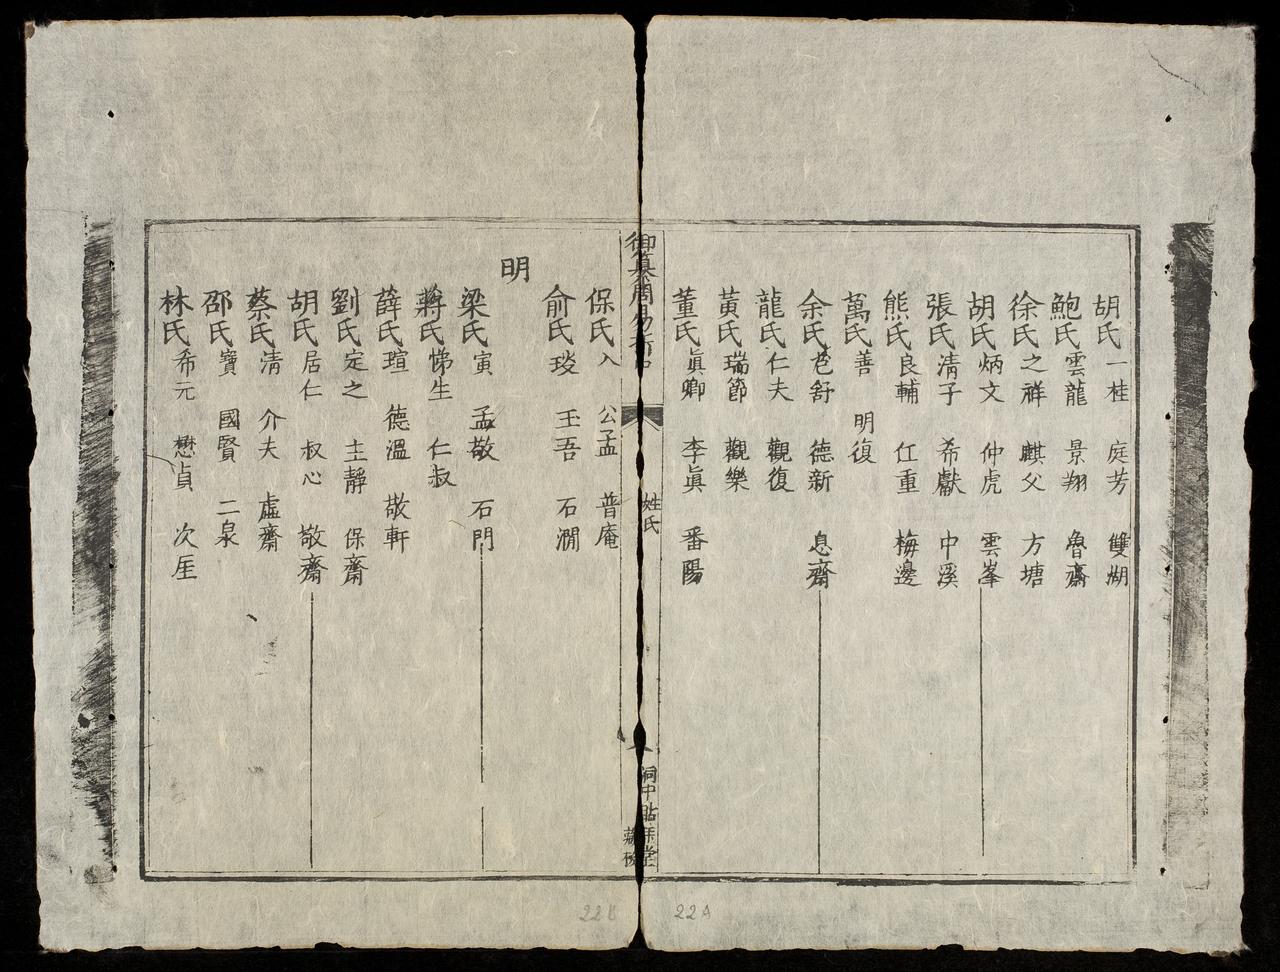 胡氏一桂 庭芳 雙湖
鮑氏雲龍 景翔 魯齋
徐氏之祥 麒父 方塘
胡氏炳文 仲虎 雲峯
張氏清子 希獻 中溪
熊氏良輔 任重 梅邊
萬氏善 明復
余氏芑舒 德新 息齋
龍氏仁夫 觀復
黃氏瑞節 觀樂
董氏眞卿 李眞 番陽
御纂周易折中
姓氏
洞中
堂
保氏八 公孟 普庵
俞氏琰 玉吾 石澗
明
梁氏寅 孟敬 石門
蔣氏悌生 仁叔
薛氏瑄 德溫 敬軒
劉氏定之 主靜 保齋
胡氏居仁 叔心 敬齋
蔡氏清 介夫 虛齋
邵氏寶 國賢 二泉
林氏希元 懋貞 次厓
22B
22A